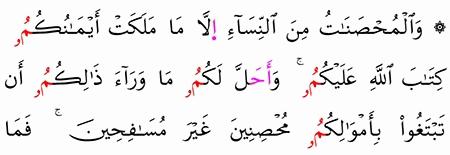 ۞ وَٱلْمُحْصَنَـٰتُ مِنَ ٱلنِّسَآءِ إِلَّا مَا مَلَكَتْ أَيْمَـٰنُكُمُۥ
كِتَـٰبَ ٱللَّهِ عَلَيْكُمُۥ ۚ وَأَحَلَّ لَكُمُۥ مَا وَرَآءَ ذَٰلِكُمُۥ أَن
تَبْتَغُوا۟ بِأَمْوَٰلِكُمُۥ مُحْصِنِينَ غَيْرَ مُسَـٰفِحِينَ ۚ فَمَا